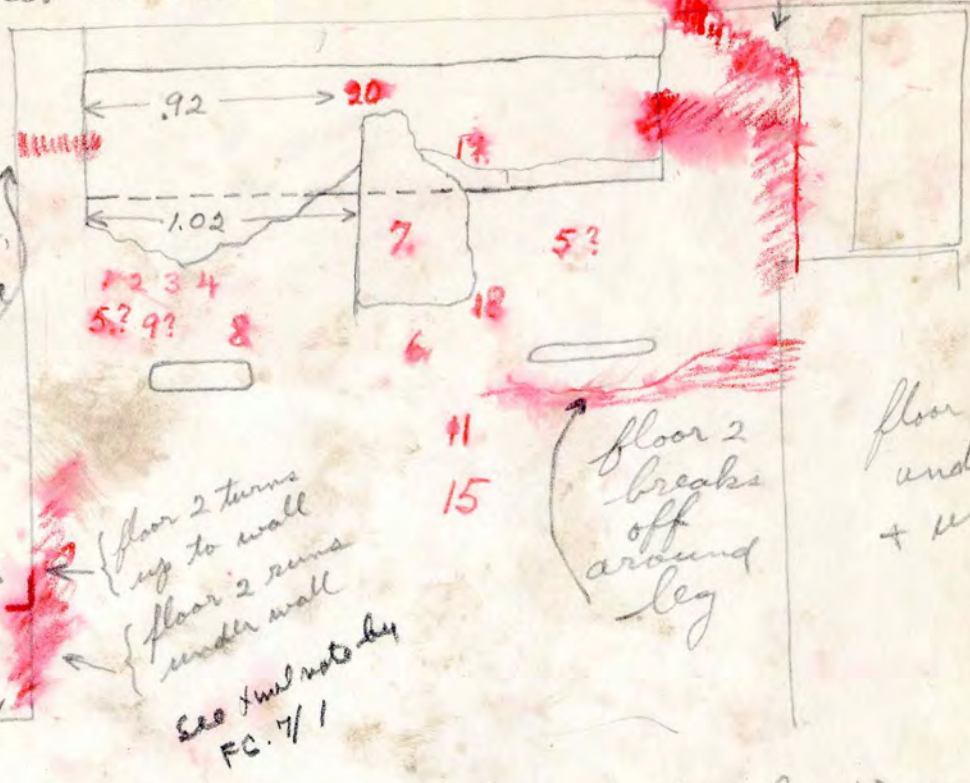 .92
20
1.02
7.
5?
1 2 3 4
5? 9?
8
18
6
11
15
floor 2 turns
up to wall
floor 2 runs
under wall
see
note by
FC. 7/1
floor 2
breaks
off
around
leg
floor